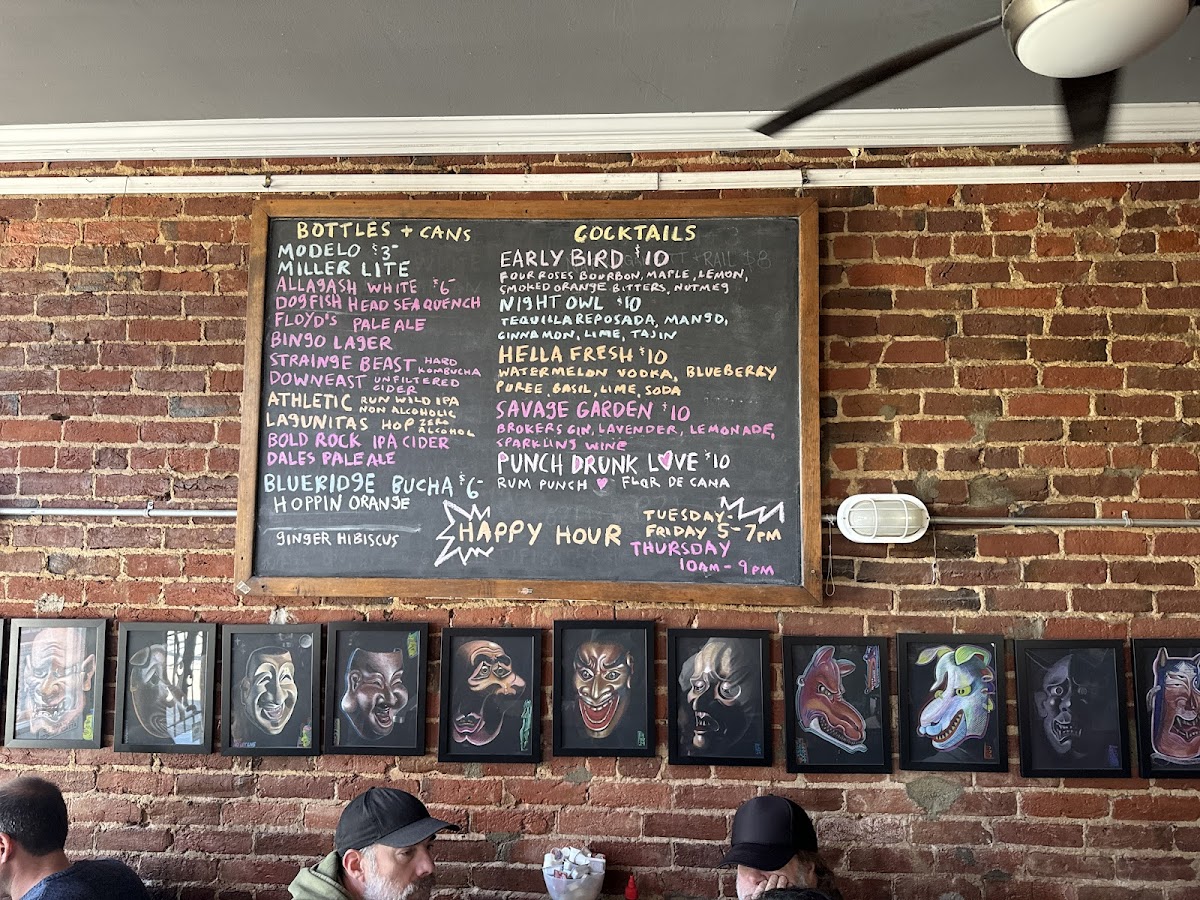 BOTTLES + CANS
MODELO $3-
MILLER LITE
ALLAGASH WHITE $6-
DOGFISH HEAD SEAQUENCH
FLOYD'S PALE ALE
BINGO LAGER
STRAINGE BEAST HARD KOMBUCHA
DOWNEAST UNFILTERED CIDER
ATHLETIC RUN WILD IPA NON ALCOHOLIC
LAGUNITAS HOP ZERO ALCOHOL
BOLD ROCK IPA CIDER
DALES PALE ALE
BLUERIDGE BUCHA $6-
HOPPIN ORANGE
GINGER HIBISCUS
COCKTAILS
EARLY BIRD $10
FOUR ROSES BOURBON, MAPLE, LEMON,
SMOKED ORANGE BITTERS, NUTMEG
NIGHT OWL $10
TEQUILA REPOSADA, MANGO,
CINNAMON, LIME, TAJIN
HELLA FRESH $10
WATERMELON VODKA, BLUEBERRY
PUREE, BASIL, LIME, SODA
SAVAGE GARDEN $10
BROKERS GIN, LAVENDER, LEMONADE,
SPARKLING WINE
PUNCH DRUNK LOVE $10
RUM PUNCH ♥ FLOR DE CANA
HAPPY HOUR
TUESDAY-
FRIDAY 5-7PM
THURSDAY
10AM-9PM